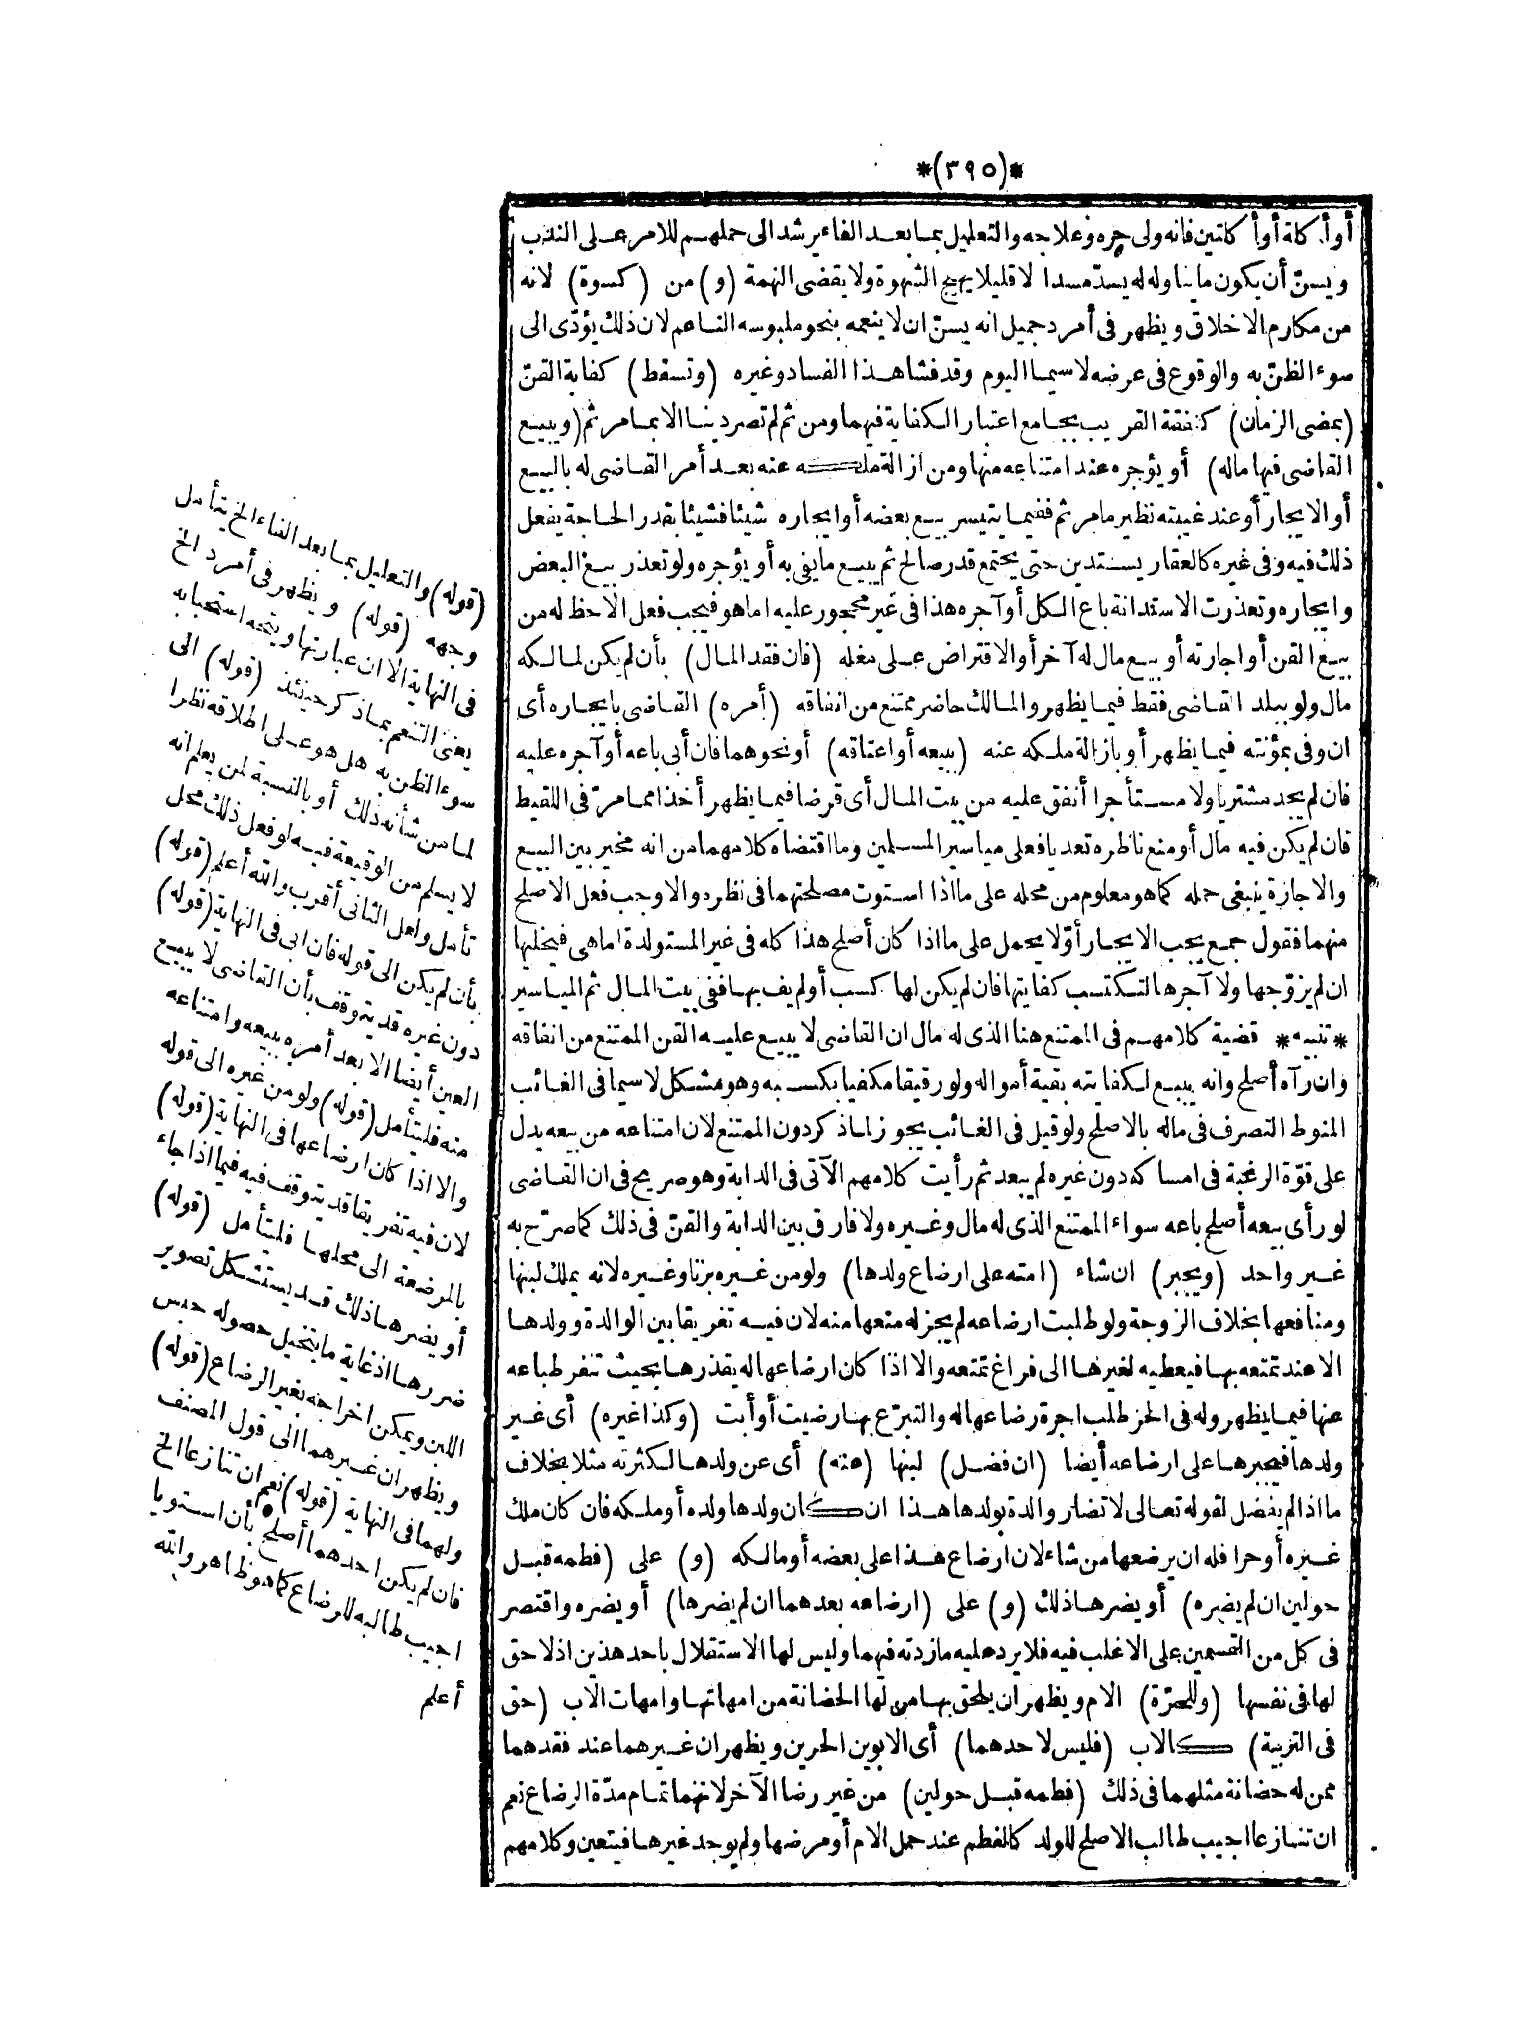 *(٣٩٥)*
أو أكلة أو أكلتين فانه ولى حره وعلاجه والتعليل بما بعد الفاء يرشد الى حملهم للامر على الندب
ويسنّ أن يكون ما يناوله له يسدّ مسدا لا قليلا يهيج الشهوة ولا يقضى النهمة (و) من (كسوة) لانه
من مكارم الاخلاق ويظهر فى أمرد جميل انه يسنّ ان لا ينعمه بنحو ملبوسه الناعم لان ذلك يؤدّى الى
سوء الظنّ به والوقوع فى عرضه لا سيما اليوم وقد فشا هذا الفساد وغيره (وتسقط) كفاية القنّ
(بمضى الزمان) كنفقة القريب بجامع اعتبار الكفاية فيهما ومن ثم لم تصر دينا الا بما مر ثم (ويبيع
القاضى فيها ماله) أو يؤجره عند امتناعه منها ومن ازالة ملكه عنه بعد أمر القاضى له بالبيع
أو الايجار أو عند غيبته نظير ما مر ثم ففيما يتيسر بيع بعضه أو ايجاره شيئا فشيئا بقدر الحاجة يفعل
ذلك فيه وفى غيره كالعقار يستدين حتى يجتمع قدر صالح ثم يبيع ما يفى به أو يؤجره ولو تعذر بيع البعض
وايجاره وتعذرت الاستدانة باع الكل أو آجره هذا فى غير محجور عليه اما هو فيجب فعل الاحظ له من
بيع القن أو اجارته أو بيع مال له آخر أو الاقتراض على مغله (فان فقد المال) بأن لم يكن لمالكه
مال ولو ببلد القاضى فقط فيما يظهر والمالك حاضر ممتنع من انفاقه (أمره) القاضى بايجاره أى
ان وفى بمؤنته فيما يظهر أو بازالة ملكه عنه (ببيعه أو اعتاقه) أو نحوهما فان أبى باعه أو آجره عليه
فان لم يجد مشتريا ولا مستأجرا أنفق عليه من بيت المال أى قرضا فيما يظهر أخذا مما مرّ فى اللقيط
فان لم يكن فيه مال أو منع ناظره تعديا فعلى مياسير المسلمين وما اقتضاه كلامهما من انه مخير بين البيع
والاجارة ينبغى حمله كما هو معلوم من محله على ما اذا استوت مصلحتهما فى نظره والا وجب فعل الاصلح
منهما فقول جمع يجب الايجار أوّلا يحمل على ما اذا كان أصلح هذا كله فى غير المستولدة اما هى فيخليها
ان لم يزوّجها ولا آجرها لتكتسب كفايتها فان لم يكن لها كسب أو لم يف بها ففى بيت المال ثم المياسير
*تنبيه* قضية كلامهم فى الممتنع هنا الذى له مال ان القاضى لا يبيع عليه القن الممتنع من انفاقه
وان رآه أصلح وانه يبيع لكفايته بقية أمواله ولو رقيقا مكفيا بكسبه وهو مشكل لا سيما فى الغائب
المنوط التصرف فى ماله بالاصلح ولو قيل فى الغائب يجوز لما ذكر دون الممتنع لان امتناعه من بيعه يدل
على قوّة الرغبة فى امساكه دون غيره لم يبعد ثم رأيت كلامهم الآتى فى الدابة وهو صريح فى ان القاضى
لو رأى بيعه أصلح باعه سواء الممتنع الذى له مال وغيره ولا فارق بين الدابة والقنّ فى ذلك كما صرّح به
غير واحد (ويجبر) ان شاء (امته على ارضاع ولدها) ولو من غيره بزنا وغيره لانه يملك لبنها
ومنافعها بخلاف الزوجة ولو طلبت ارضاعه لم يجز له منعها منه لان فيه تفريقا بين الوالدة وولدها
الا عند تمتعه بها فيعطيه لغيرها الى فراغ تمتعه والا اذا كان ارضاعها له يقذرها بحيث تنفر طباعه
عنها فيما يظهر وله فى الحر طلب اجرة رضاعها له والتبرّع بها رضيت أو أبت (وكذا غيره) أى غير
ولدها فيجبرها على ارضاعه أيضا (ان فضل) لبنها (عنه) أى عن ولدها لكثرته مثلا بخلاف
ما اذا لم يفضل لقوله تعالى لا تضار والدة بولدها هذا ان كان ولدها ولده أو ملكه فان كان ملك
غيره أو حرا فله ان يرضعها من شاء لان ارضاع هذا على بعضه أو مالكه (و) على (فطمه قبل
حولين ان لم يضره) أو يضرها ذلك (و) على (ارضاعه بعدهما ان لم يضرها) أو يضره واقتصر
فى كل من القسمين على الاغلب فيه فلا يرد عليه ما زدته فيهما وليس لها الاستقلال باحد هذين اذ لا حق
لها فى نفسها (وللحرّة) الام ويظهر ان يلحق بها من لها الحضانة من امهاتها وامهات الاب (حق
فى التربية) كالاب (فليس لاحدهما) أى الابوين الحرين ويظهر ان غيرهما عند فقدهما
ممن له حضانة مثلهما فى ذلك (فطمه قبل حولين) من غير رضا الآخر لانهما تمام مدّة الرضاع نعم
ان تنازعا اجيب طالب الاصلح للولد كالفطم عند حمل الام أو مرضها ولم يوجد غيرها فيتعين وكلامهم
(قوله) والتعليل بما بعد الفاء الخ يتأمل
وجهه (قوله) ويظهر فى أمرد الخ
فى النهاية الا ان عبارتها ويتجه استحبابه
يعنى التنعم بما ذكر حينئذ (قوله) الى
سوء الظن به هل هو على اطلاقه نظرا
لما من شأنه ذلك أو بالنسبة لمن يعلم انه
لا يسلم من الوقيعة فيه لو فعل ذلك محل
تأمل ولعل الثانى أقرب والله أعلم (قوله)
بأن لم يكن الى قوله فان ابى فى النهاية (قوله)
دون غيره قد يتوقف بأن القاضى لا يبيع
العين أيضا الا بعد أمره ببيعه وامتناعه
منه فليتأمل (قوله) ولو من غيره الى قوله
والا اذا كان ارضاعها فى النهاية (قوله)
لان فيه تفريقا قد يتوقف فيه فيما اذا جاء
بالمرضعة الى محلها فليتأمل (قوله)
أو يضرها ذلك قد يستشكل تصوير
ضررها اذ غاية ما يتخيل حصوله حبس
اللبن ويمكن اخراجه بغير الرضاع (قوله)
ويظهر ان غيرهما الى قول المصنف
ولهما فى النهاية (قوله) نعم ان تنازعا الخ
فان لم يكن احدهما أصلح بأن استويا
اجيب طالبه للرضاع كما هو ظاهر والله
أعلم